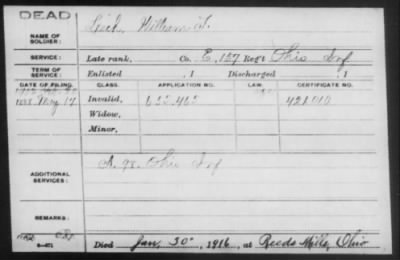 DEAD
NAME OF SOLDIER: William H.
SERVICE: Late rank, Co. E, 127 Reg't Ohio Inf
TERM OF SERVICE: Enlisted , 1 Discharged , 1
DATE OF FILING. CLASS. APPLICATION NO. LAW. CERTIFICATE NO.
1888 May 17 Invalid, 653,465 421,010
Widow,
Minor,
ADDITIONAL SERVICES: A. 98 Ohio Inf
REMARKS:
Died Jan. 30", 1916, at Reeds Mills, Ohio